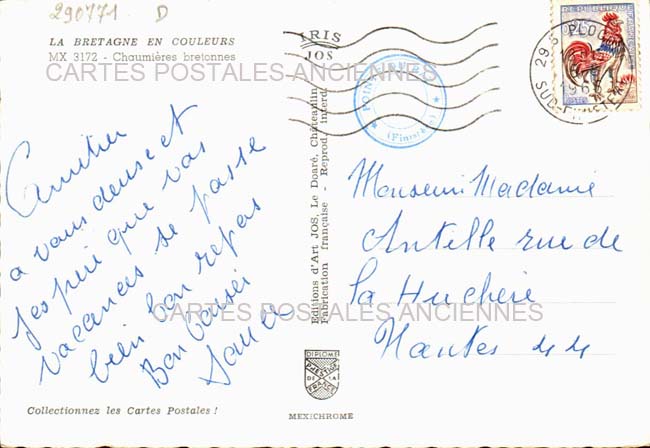 290771 D
LA BRETAGNE EN COULEURS
MX 3172 - Chaumières bretonnes
CARTES POSTALES ANCIENNES
IRIS
JOS
REPUBLIQUE
29 S PLOG
196
SUD-FINISTERE
(Finistère)
Amitier
a vous deuse et
j'espeire que vas
vacances se passe
bien bon repas
Bon baiser
Editions d'Art JOS, Le Doaré, Châteaulin
Fabrication française - Reprod. interd.
Monsieur Madame
Antelle rue de
la Huchère
Nantes 44
CARTES POSTALES ANCIENNES
DIPLOME
PRESTIGE
DE LA
FRANCE
MEXICHROME
Collectionnez les Cartes Postales !